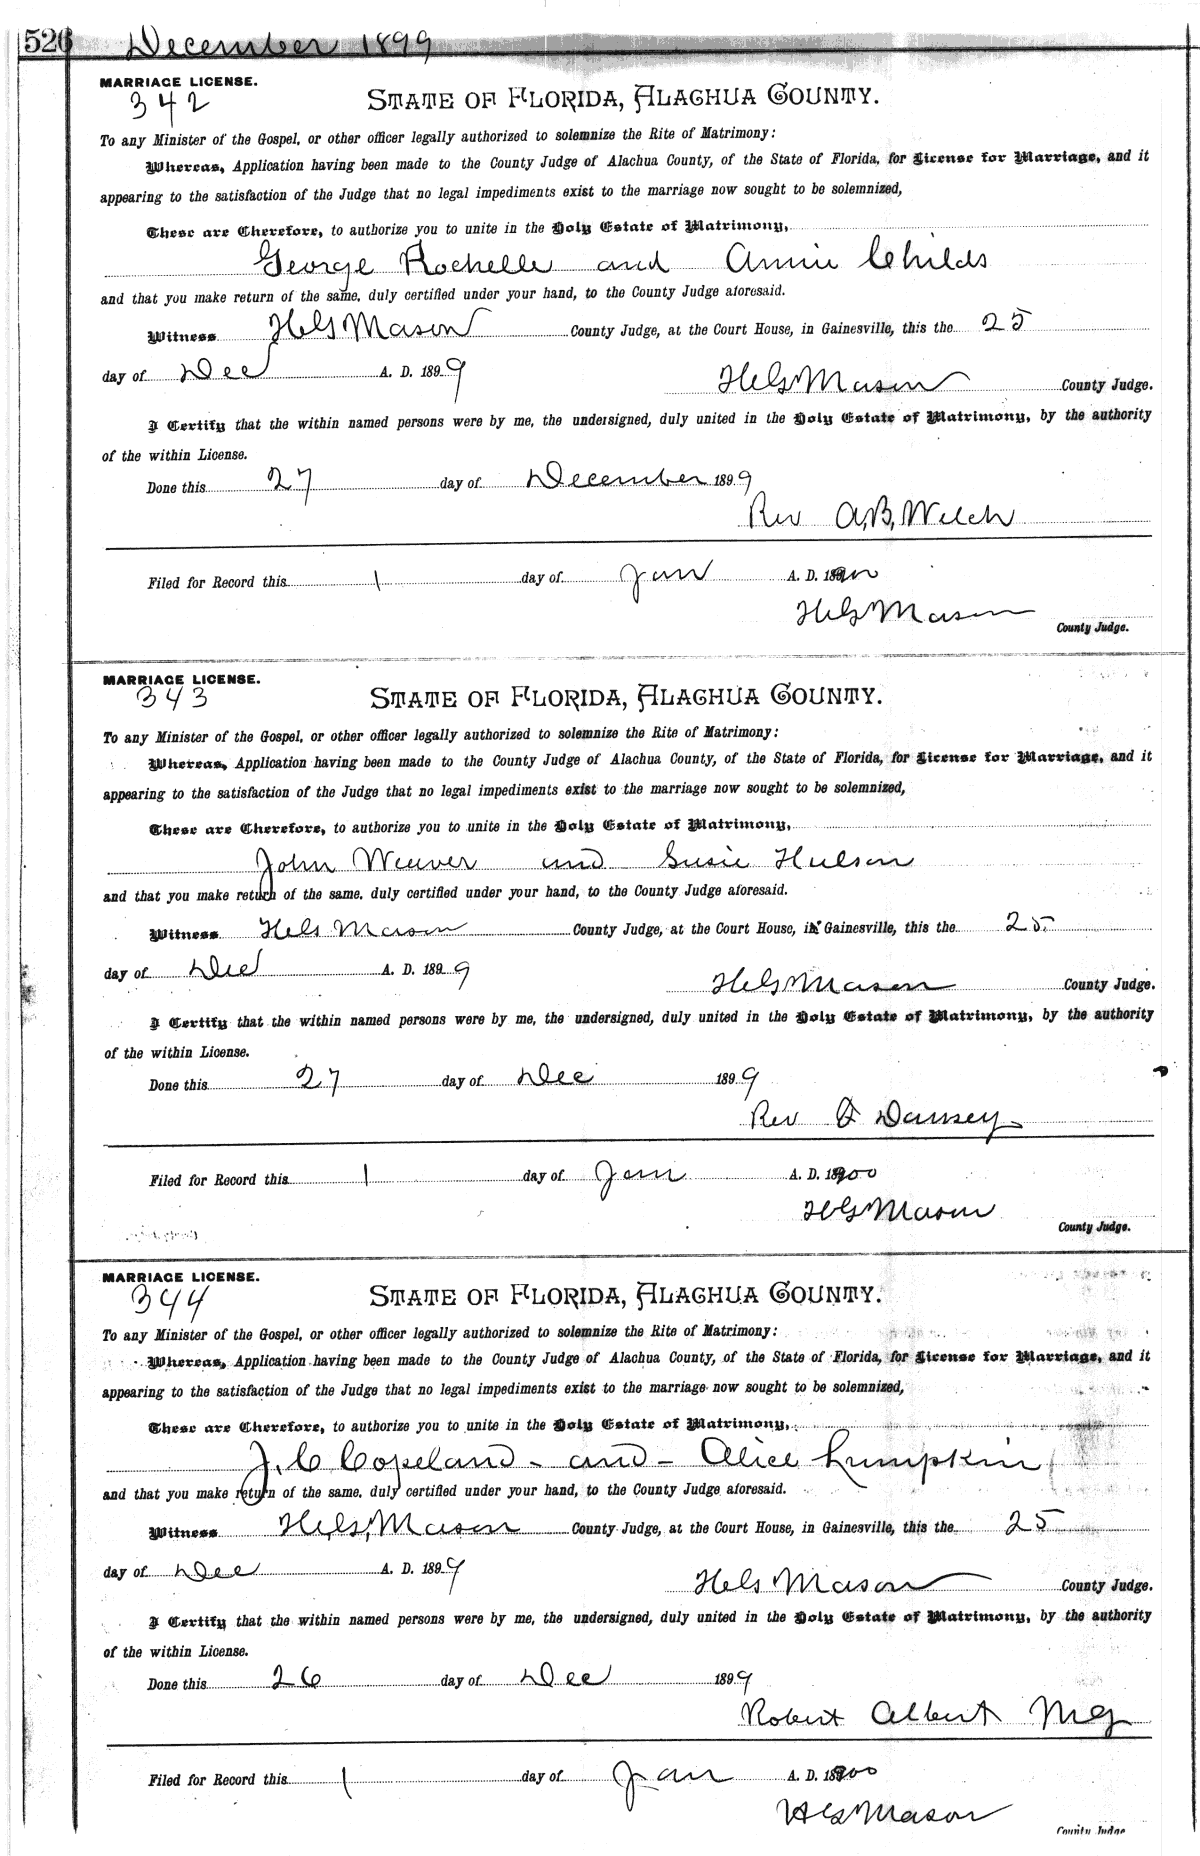 526 December 1899
MARRIAGE LICENSE.
342
STATE OF FLORIDA, ALACHUA COUNTY.
To any Minister of the Gospel, or other officer legally authorized to solemnize the Rite of Matrimony:
Whereas, Application having been made to the County Judge of Alachua County, of the State of Florida, for License for Marriage, and it
appearing to the satisfaction of the Judge that no legal impediments exist to the marriage now sought to be solemnized,
These are Therefore, to authorize you to unite in the Holy Estate of Matrimony,
George Rochelle and Annie Childs
and that you make return of the same, duly certified under your hand, to the County Judge aforesaid.
Witness H.G. Mason County Judge, at the Court House, in Gainesville, this the 25
day of Dec A. D. 1899
H.G. Mason County Judge.
I Certify that the within named persons were by me, the undersigned, duly united in the Holy Estate of Matrimony, by the authority
of the within License.
Done this 27 day of December 1899
Rev A.B. Welch
Filed for Record this 1 day of Jan A. D. 1900
H.G. Mason
County Judge.
MARRIAGE LICENSE.
343
STATE OF FLORIDA, ALACHUA COUNTY.
To any Minister of the Gospel, or other officer legally authorized to solemnize the Rite of Matrimony:
Whereas, Application having been made to the County Judge of Alachua County, of the State of Florida, for License for Marriage, and it
appearing to the satisfaction of the Judge that no legal impediments exist to the marriage now sought to be solemnized,
These are Therefore, to authorize you to unite in the Holy Estate of Matrimony,
John Weaver and Susie
and that you make return of the same, duly certified under your hand, to the County Judge aforesaid.
Witness H.G. Mason County Judge, at the Court House, in Gainesville, this the 25
day of Dec A. D. 1899
H.G. Mason County Judge.
I Certify that the within named persons were by me, the undersigned, duly united in the Holy Estate of Matrimony, by the authority
of the within License.
Done this 27 day of Dec 1899
Rev
Filed for Record this 1 day of Jan A. D. 1900
H.G. Mason
County Judge.
MARRIAGE LICENSE.
344
STATE OF FLORIDA, ALACHUA COUNTY.
To any Minister of the Gospel, or other officer legally authorized to solemnize the Rite of Matrimony:
Whereas, Application having been made to the County Judge of Alachua County, of the State of Florida, for License for Marriage, and it
appearing to the satisfaction of the Judge that no legal impediments exist to the marriage now sought to be solemnized,
These are Therefore, to authorize you to unite in the Holy Estate of Matrimony,
J. C Copeland - and - Alice Lumpkin
and that you make return of the same, duly certified under your hand, to the County Judge aforesaid.
Witness H.G. Mason County Judge, at the Court House, in Gainesville, this the 25
day of Dec A. D. 1899
H.G. Mason County Judge.
I Certify that the within named persons were by me, the undersigned, duly united in the Holy Estate of Matrimony, by the authority
of the within License.
Done this 26 day of Dec 1899
Robert Albert Mg
Filed for Record this 1 day of Jan A. D. 1900
H.G. Mason
County Judge